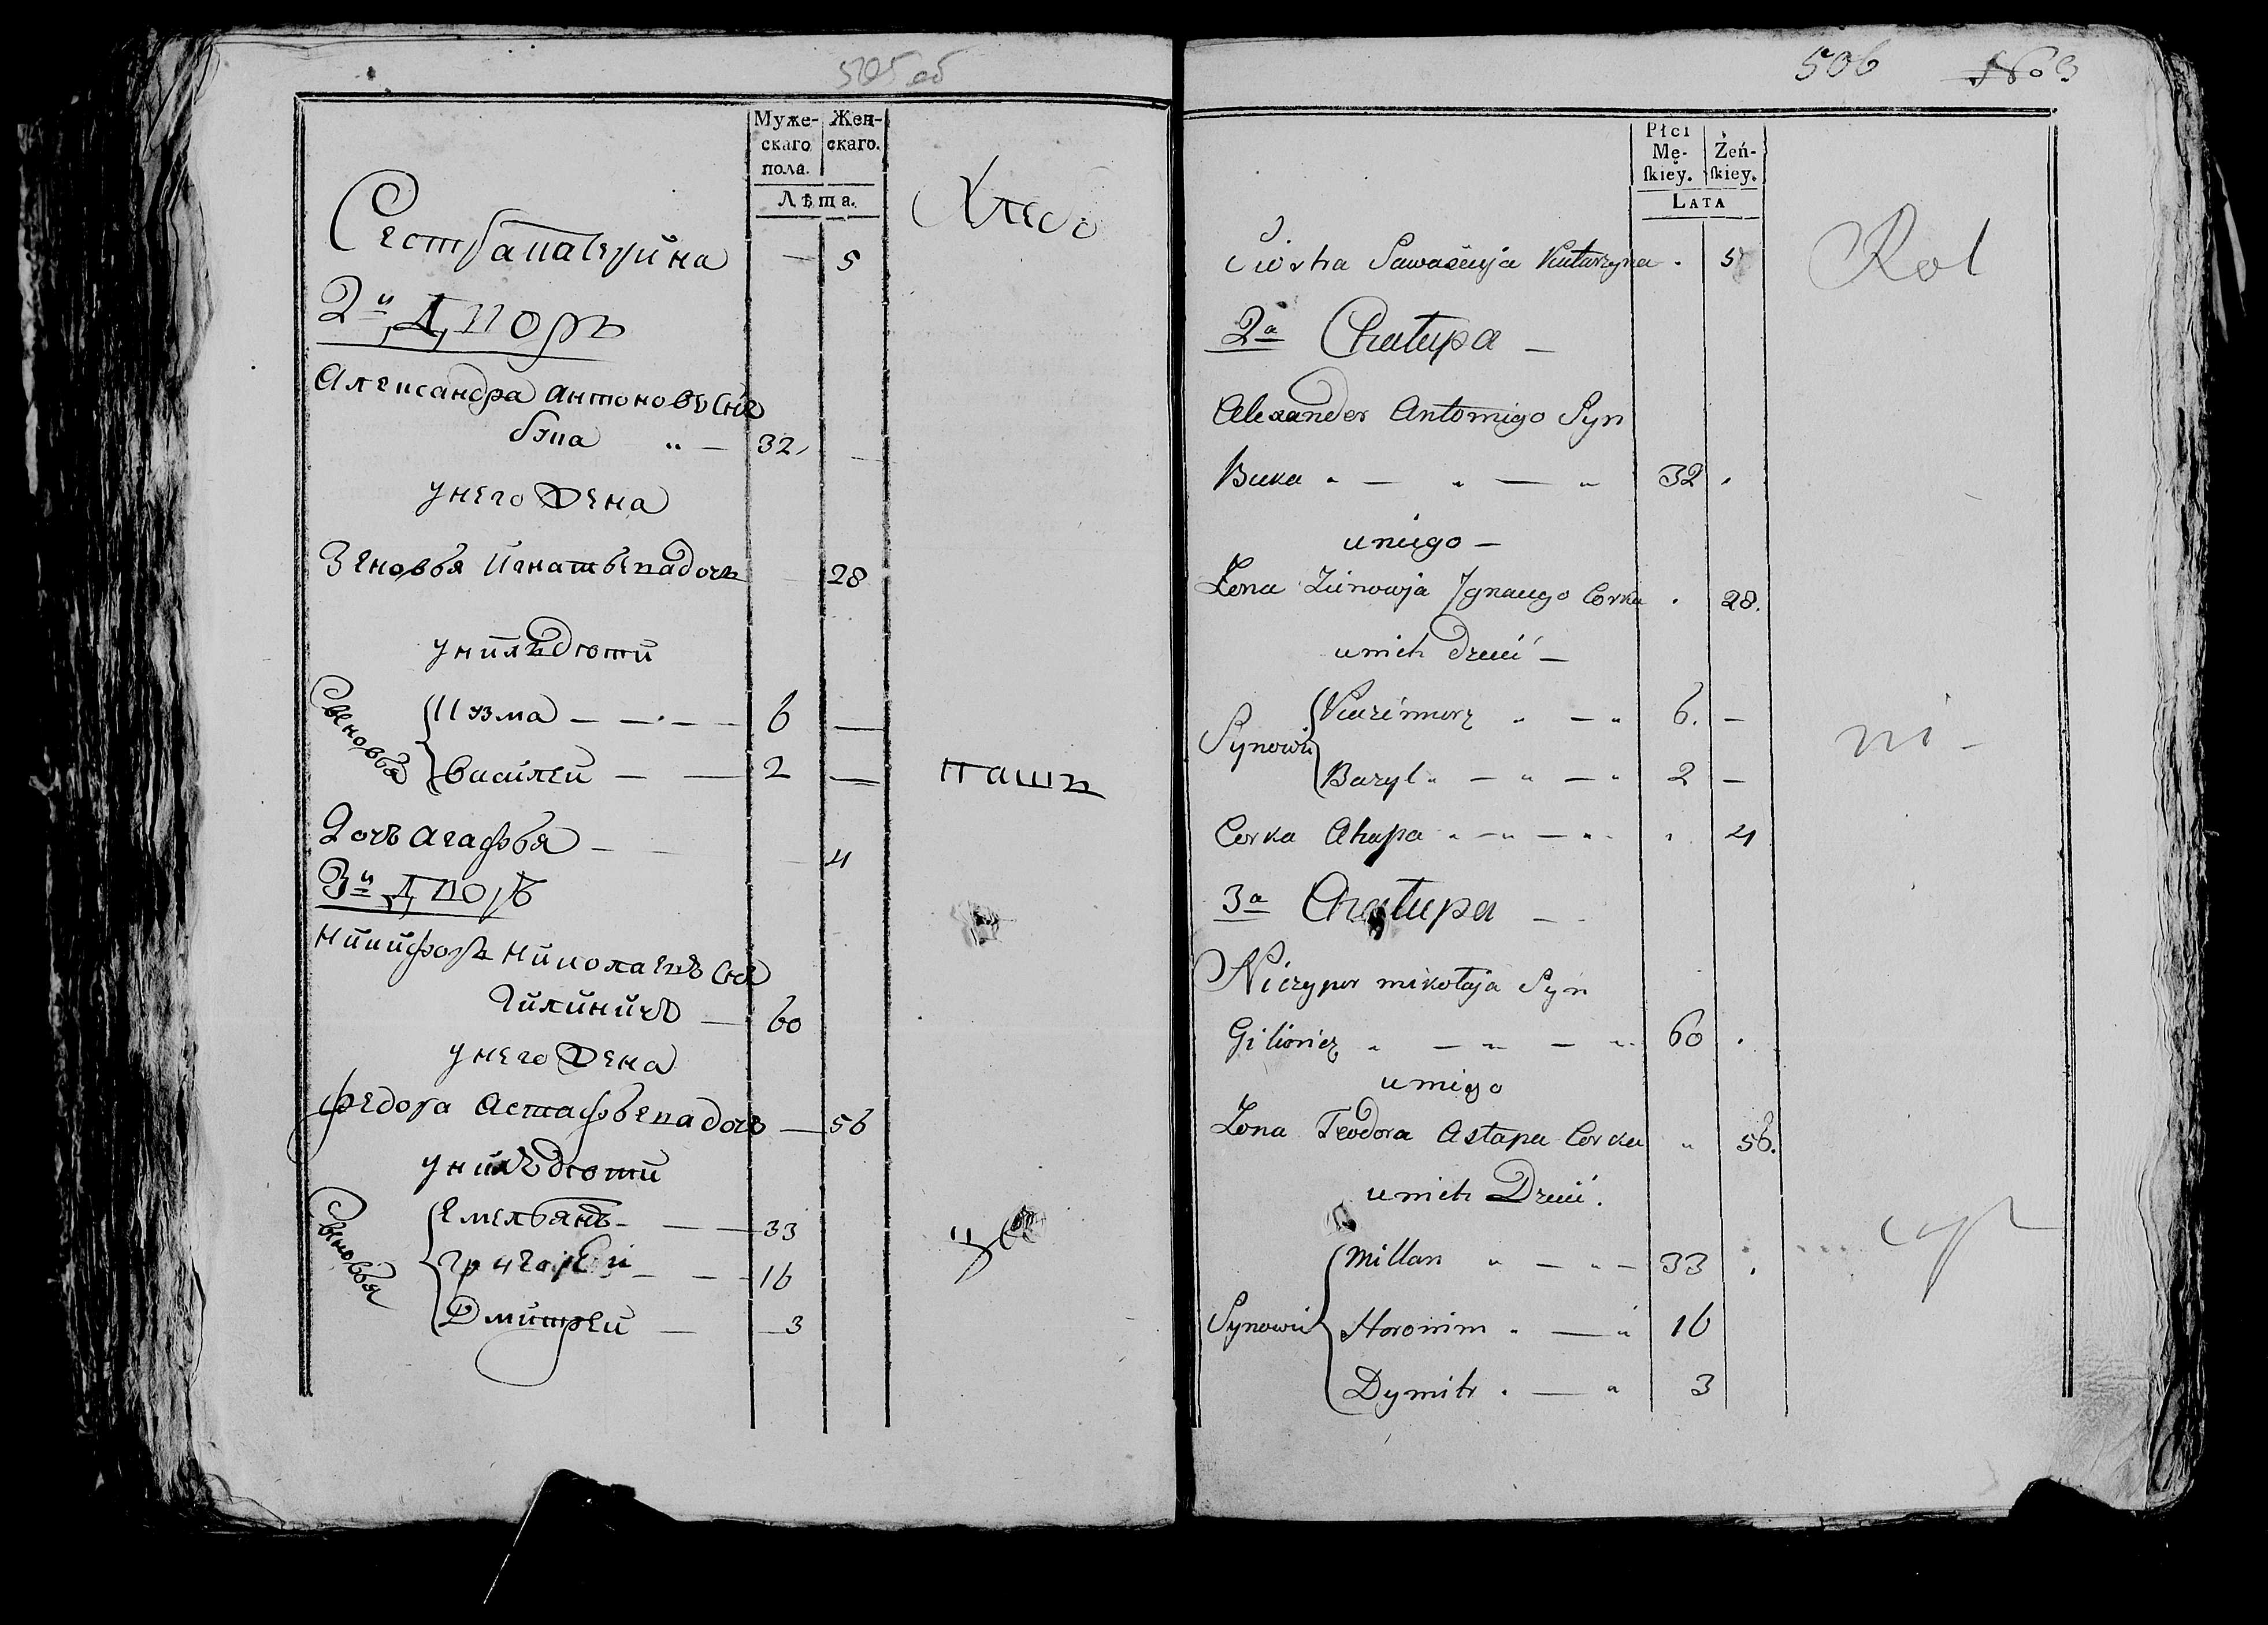 505 об
Муже-
скаго
пола.
Жен-
скаго.
Лѣта.
Хлебо
Сестра катерина — 5
2й Дворъ
Александра антоновъ снъ
бука „ — 32
унего жена
Зеновья Игнатьева дочь 28
унихъ дѣти
Сыновья
Кузма — — — 6 —
василей — — 2 —
пашц
Дочь агафья — — 4
3й Дворъ
Никифоръ Николаевъ снъ
Гилиничъ — 60
унего жена
федора астафьева дочь — 56
унихъ дѣти
Сыновья
Емельянъ — — 33
Григорей — — 16
Дмитрей — 3
506 1603
Płci
Mę-
ſkiey.
Żeń-
ſkiey.
LATA
Siostra Katarzyna . 5
Rol
2a Chałupa —
Alexander Antoniego Syn
Buka „ — „ — „ 32 .
uniego —
Żona Zienowja Ignacego Corka . 28.
unich Dzieci —
Synowie
Kazimierz „ — „ 6. —
ni-
Bazyl „ — „ — „ 2 —
Corka Ahapa „ — „ — „ . 4
3a Chałupa —
Niczypor mikołaja Syn
Gilinicz „ — „ — „ 60 .
uniego
Żona Teodora Astapa Corka „ 56.
unich Dzieci.
cy
Synowie
Millan „ — „ — 33 .
Horonim „ — „ 16
Dymitr . — „ 3